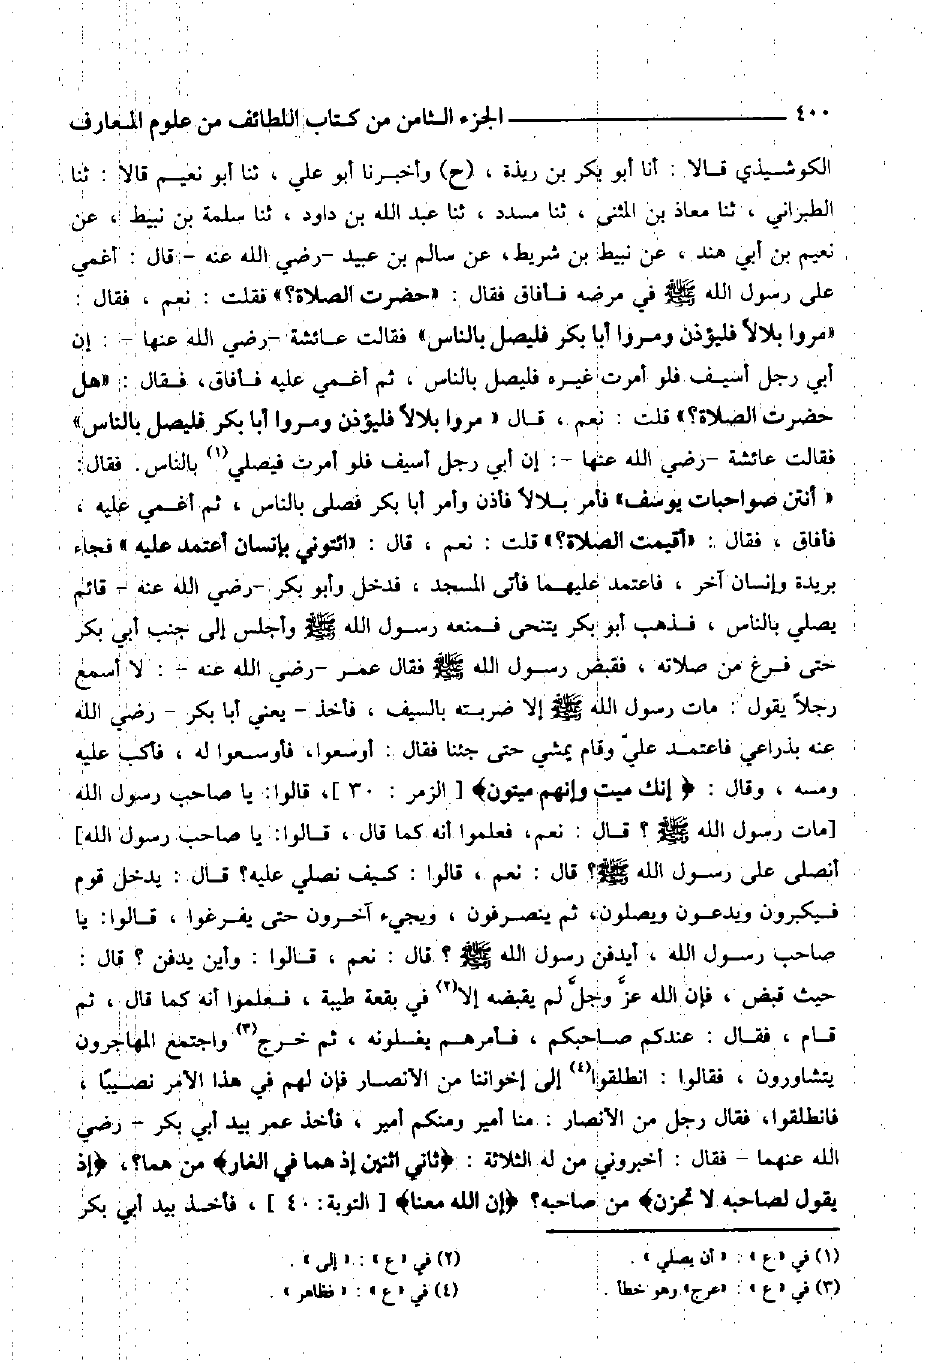 ٤٠٠ ــــــــــــــــ الجزء الثامن من كتاب اللطائف من علوم المعارف
الكوشيذي قالا : أنا أبو بكر بن ريذة ، (ح) وأخبرنا أبو علي ، ثنا أبو نعيم قالا : ثنا
الطبراني ، ثنا معاذ بن المثنى ، ثنا مسدد ، ثنا عبد الله بن داود ، ثنا سلمة بن نبيط ، عن
نعيم بن أبي هند ، عن نبيط بن شريط، عن سالم بن عبيد -رضي الله عنه - قال : أغمي
على رسول الله ﷺ في مرضه فأفاق فقال : «حضرت الصلاة؟» فقلت : نعم ، فقال :
«مروا بلالاً فليؤذن ومروا أبا بكر فليصل بالناس» فقالت عائشة -رضي الله عنها - : إن
أبي رجل أسيف فلو أمرت غيره فليصل بالناس ، ثم أغمي عليه فأفاق، فقال : «هل
حضرت الصلاة؟» قلت : نعم ، قال « مروا بلالاً فليؤذن ومروا أبا بكر فليصل بالناس»
فقالت عائشة -رضي الله عنها -: إن أبي رجل أسيف فلو أمرت فيصلي(١) بالناس. فقال:
« أنتن صواحبات يوسف» فأمر بلالاً فأذن وأمر أبا بكر فصلى بالناس ، ثم أغمي عليه ،
فأفاق ، فقال : «أقيمت الصلاة؟» قلت : نعم ، قال : «ائتوني بإنسان أعتمد عليه » فجاء
بريدة وإنسان آخر ، فاعتمد عليهما فأتى المسجد ، فدخل وأبو بكر -رضي الله عنه - قائم
يصلي بالناس ، فذهب أبو بكر يتنحى فمنعه رسول الله ﷺ وأجلس إلى جنب أبي بكر
حتى فرغ من صلاته ، فقبض رسول الله ﷺ فقال عمر -رضي الله عنه - : لا أسمع
رجلاً يقول : مات رسول الله ﷺ إلا ضربته بالسيف ، فأخذ - يعني أبا بكر - رضي الله
عنه بذراعي فاعتمد عليّ وقام يمشي حتى جئنا فقال : أوسعوا، فأوسعوا له ، فأكب عليه
ومسه ، وقال : ﴿ إنك ميت وإنهم ميتون﴾ [ الزمر : ٣٠ ]، قالوا: يا صاحب رسول الله
[مات رسول الله ﷺ ؟ قال : نعم، فعلموا أنه كما قال ، قالوا: يا صاحب رسول الله]
أنصلى على رسول الله ﷺ؟ قال : نعم ، قالوا : كيف نصلي عليه؟ قال : يدخل قوم
فيكبرون ويدعون ويصلون، ثم ينصرفون ، ويجيء آخرون حتى يفرغوا ، قالوا: يا
صاحب رسول الله ، أيدفن رسول الله ﷺ ؟ قال : نعم ، قالوا : وأين يدفن ؟ قال :
حيث قبض ، فإن الله عزَّ وجلَّ لم يقبضه إلا(٢) في بقعة طيبة ، فعلموا أنه كما قال ، ثم
قام ، فقال : عندكم صاحبكم ، فأمرهم يغسلونه ، ثم خرج(٣) واجتمع المهاجرون
يتشاورون ، فقالوا : انطلقوا(٤) إلى إخواننا من الأنصار فإن لهم في هذا الأمر نصيبًا ،
فانطلقوا، فقال رجل من الأنصار : منا أمير ومنكم أمير ، فأخذ عمر بيد أبي بكر - رضي
الله عنهما - فقال : أخبروني من له الثلاثة : ﴿ثاني اثنين إذ هما في الغار﴾ من هما؟، ﴿إذ
يقول لصاحبه لا تحزن﴾ من صاحبه؟ ﴿إن الله معنا﴾ [ التوبة: ٤٠ ] ، فأخذ بيد أبي بكر
(١) في «ع» : « أن يصلي » .
(٢) في «ع» : « إلى» .
(٣) في «ع» : «عرج» وهو خطأ .
(٤) في «ع» : « فظاهر » .